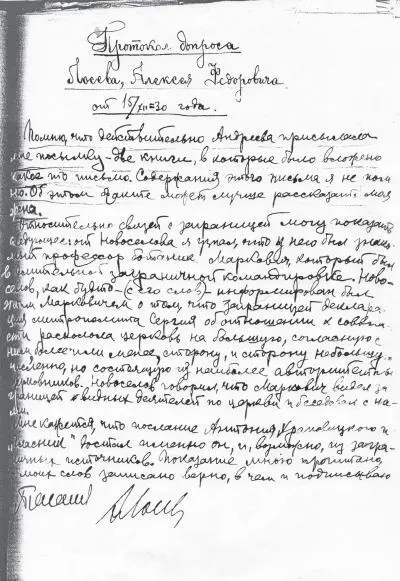 Протокол допроса
Лосева, Алексея Федоровича
от 15/XII-30 года.
Помню, что действительно Андреева присылала
мне посылку – две книги, в которые было вложено
какое то письмо. Содержания этого письма я не пом
ню. Об этом факте может лучше рассказать моя
жена.
Относительно связей с заграницей могу показать
следующее: от Новоселова я узнал, что у него был знако
мый профессор ботаник Маркович, который был
в длительной заграничной командировке. Ново-
селов, как будто – (с его слов) информирован был
этим Марковичем о том, что заграницей деклара
ция митрополита Сергия об отношении к соввла
сти расколола церковь на большую, согласную с
ним более или менее, сторону, и сторону небольшую
численно, но состоящую из наиболее авторитетных
церковников. Новоселов говорил, что Маркович видел за
границей видных деятелей по церкви и беседовал с ни-
ми.
Мне кажется, что послание Антония Храповицкого и
достал именно он, и, возможно, из загра-
ничных источников. Показание мною прочитано,
с моих слов записано верно, в чем и подписываюсь